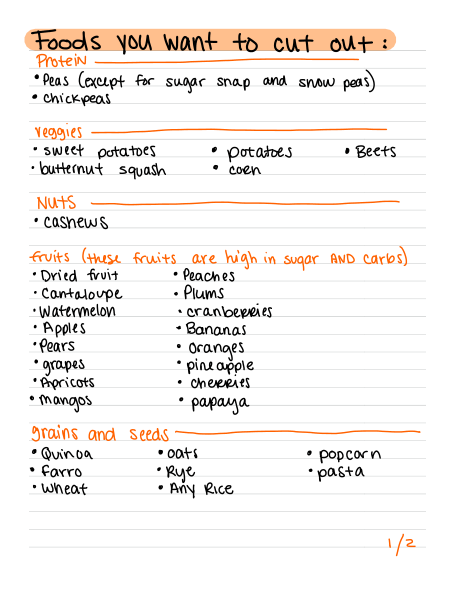 Foods you want to cut out:
Protein
• Peas (except for sugar snap and snow peas)
• chickpeas
veggies
• sweet potatoes • potatoes • Beets
• butternut squash • corn
Nuts
• cashews
fruits (these fruits are high in sugar AND carbs)
• Dried fruit • Peaches
• Cantaloupe • Plums
• Watermelon • cranberries
• Apples • Bananas
• Pears • oranges
• grapes • pineapple
• Apricots • cherries
• mangos • papaya
grains and seeds
• Quinoa • oats • popcorn
• Farro • Rye • pasta
• Wheat • Any Rice
1/2